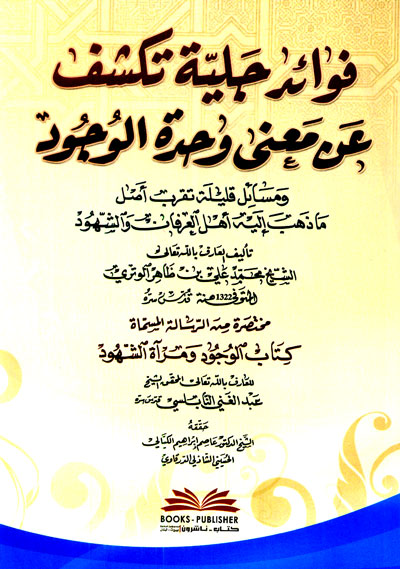 فوائد جليّة تكشف
عن معنى وحدة الوجود
ومسائل قليلة تقرب أصل
ما ذهب إليه أهل العرفان والشهود
تأليف العارف بالله تعالى
الشيخ محمد علي بن ظاهر الوتري
المتوفى 1322 سنة قدس سره
مختصرة من الرسالة المسماة
كتاب الوجود ومرآة الشهود
للعارف بالله تعالى المحقق الشيخ
عبد الغني النابلسي قدس سره
حققه
الشيخ الدكتور عاصم إبراهيم الكيالي
الحسيني الشاذلي الدرقاوي
BOOKS - PUBLISHER
كتاب - ناشرون